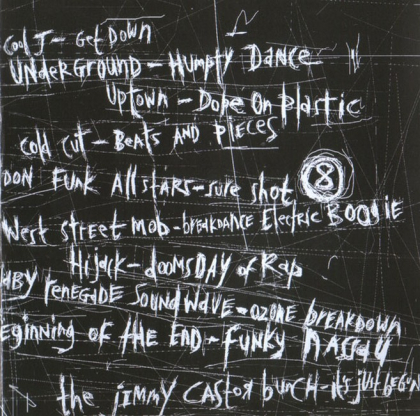 Cool J - Get Down
UNDERGROUND - Humpty Dance
Uptown - Dope On Plastic
Cold Cut - Beats AND PIECES
DON FUNK Allstars - sure shot 8
West street Mob - breakdance Electric BOOGIE
Hijack - doomsDAY of Rap
ABY reneGADE Soundwave - ozone BREAKDOWN
eginning of the End - funky Nassau
the JIMMY CAStor bunch - it's just begun